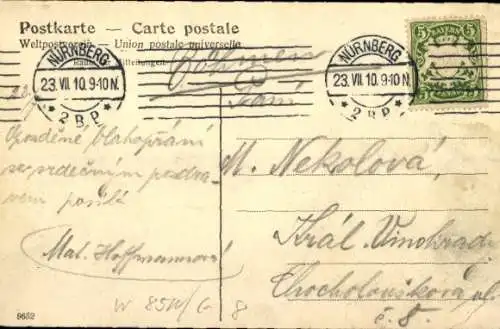 Postkarte — Carte postale
Weltpostverein — Union postale universelle
NÜRNBERG
23.VII.10.9-10N.
* 2 B.P. *
NÜRNBERG
23.VII.10.9-10N.
* 2 B.P. *
5 BAYERN 5
Böhmen
Paní
Opožděné blahopřání
se srdečným pozdra-
vem posílá
Mal. Hoffmannová
M. Nekolová,
Král. Vinohrady
Chocholouškova ul.
č. 8.
W 85W/G 8
9652